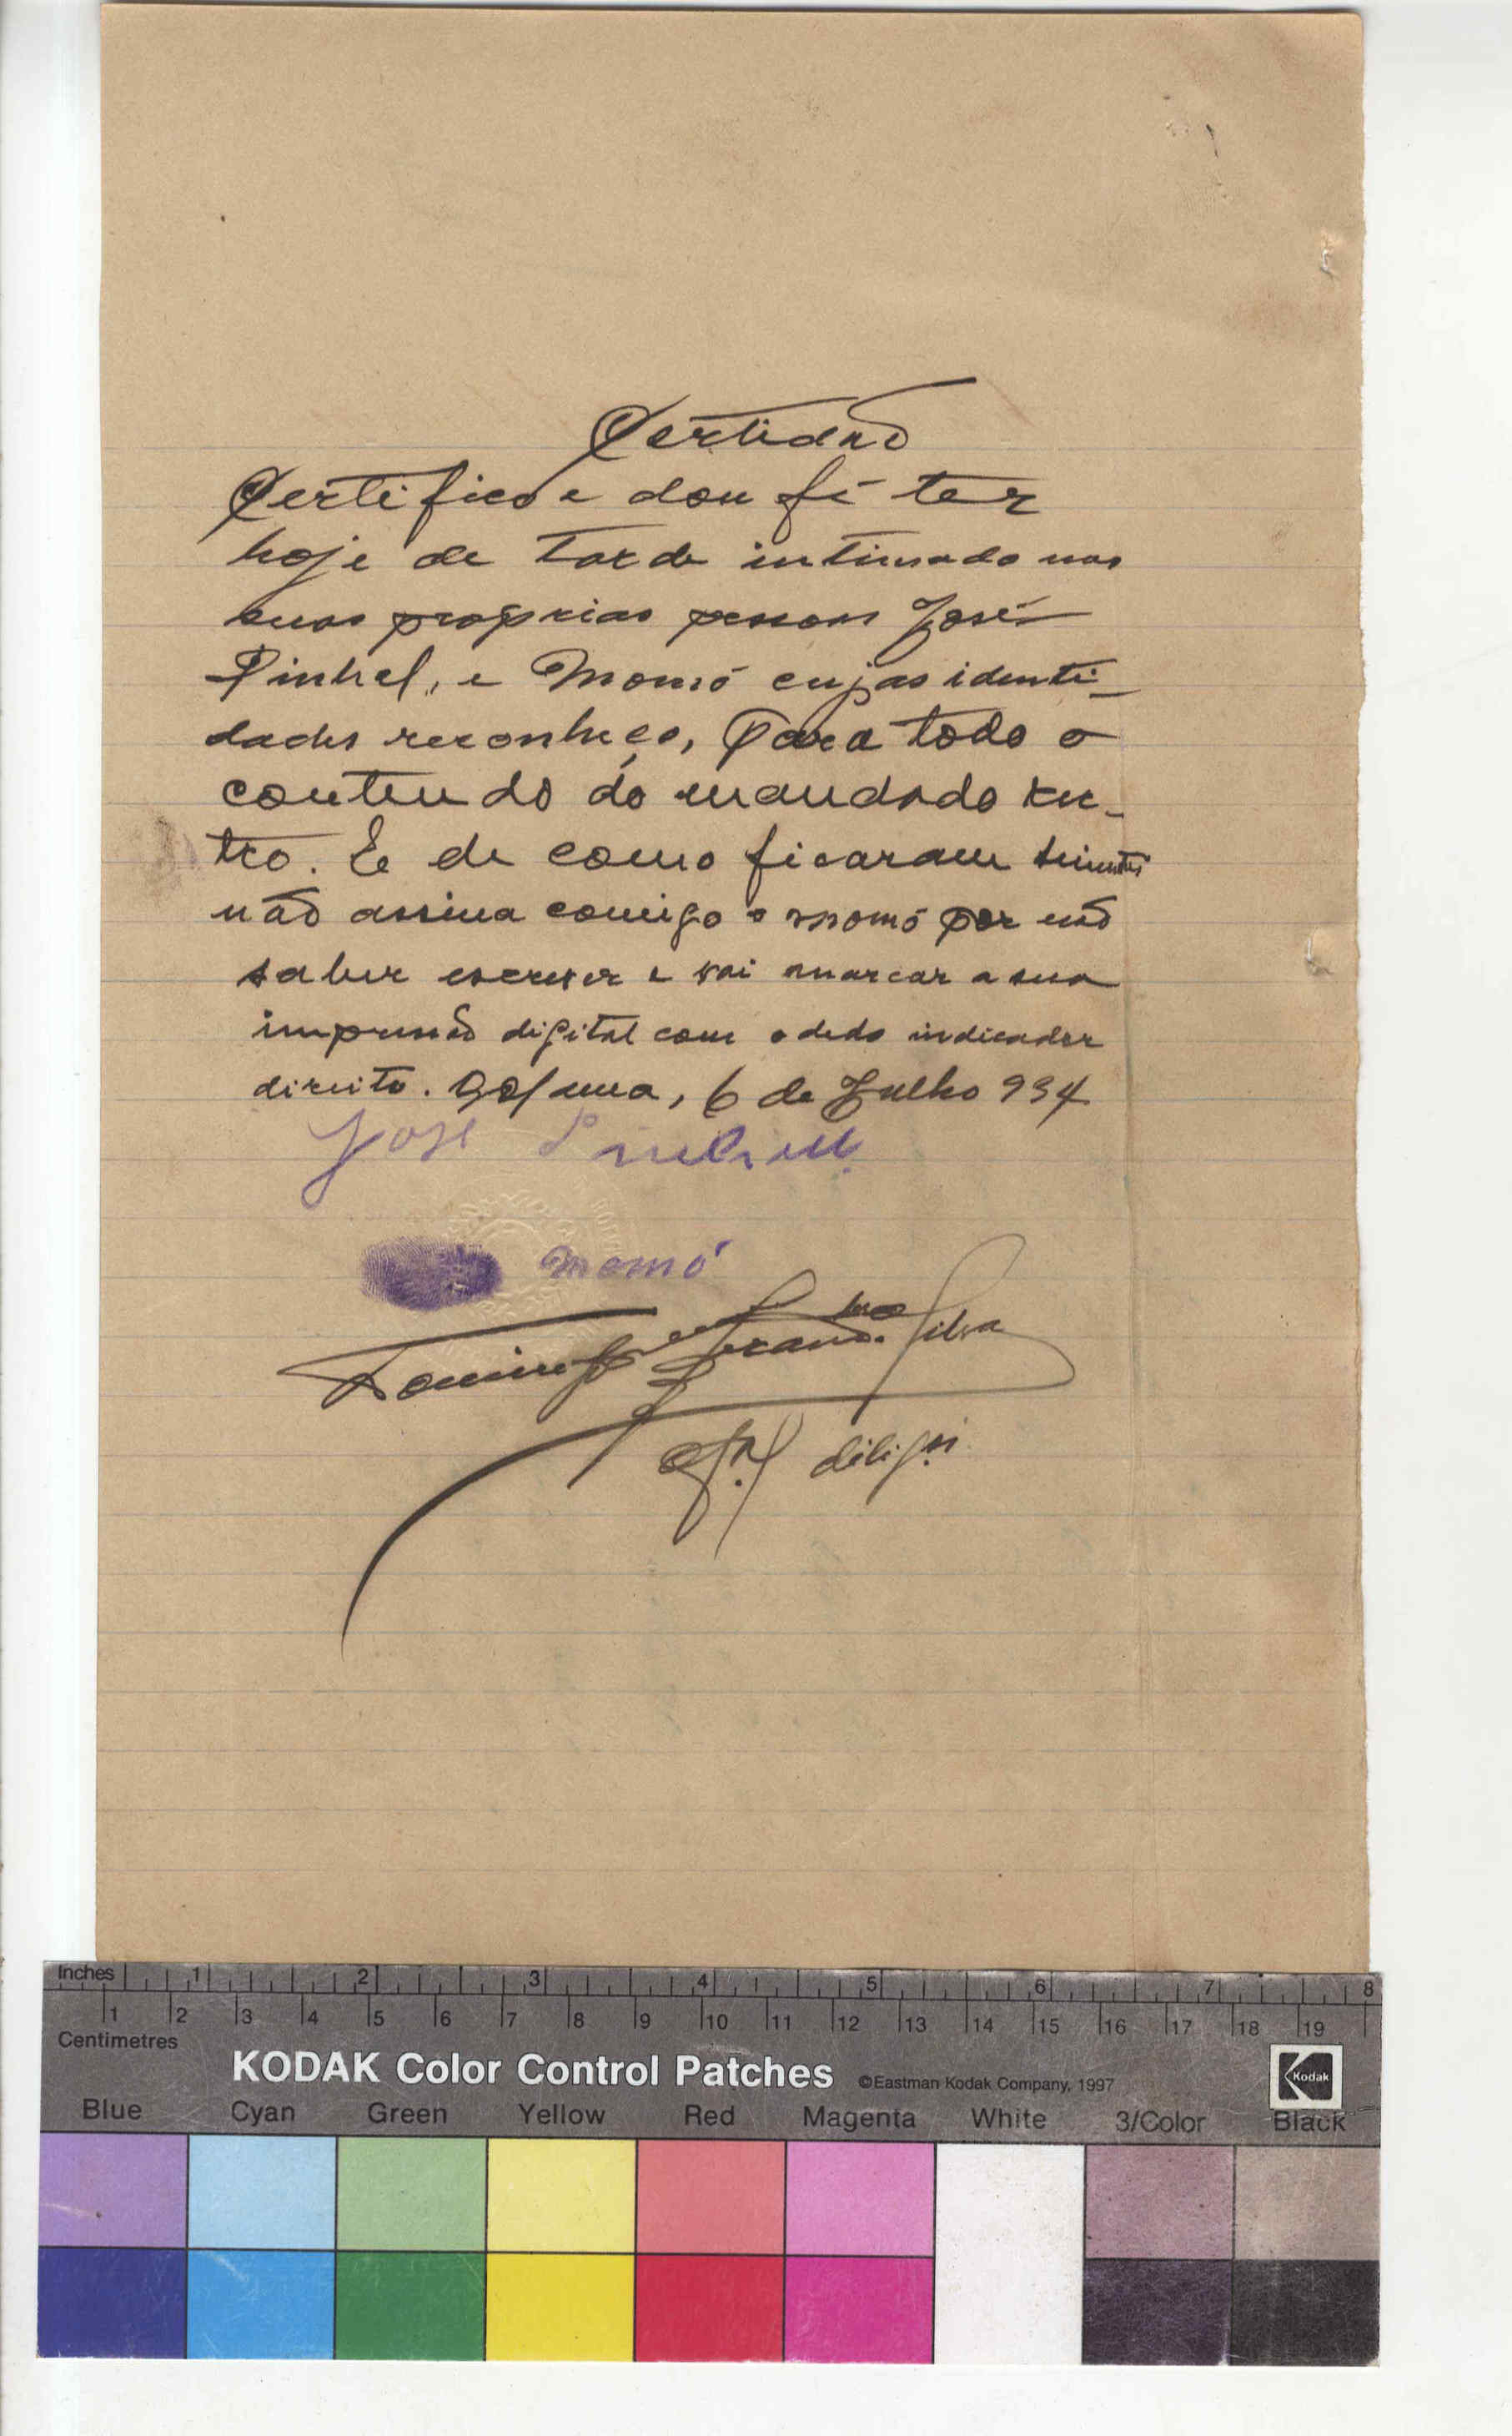 Certidão
Certifico e dou fé ter
hoje de tarde intimado nas
suas proprias pessoas José
Pinhel, e Momó cujas identi-
dades reconheço, para todo o
conteudo do mandado re-
tro. E de como ficaram scientes
não assina comigo o Momó por não
saber escrever e vai marcar a sua
impressão digital com o dedo indicador
direito. Bolama, 6 de Julho 934
José Pinhell
Momó
Silva
Inches 1 2 3 4 5 6 7 8
1 2 3 4 5 6 7 8 9 10 11 12 13 14 15 16 17 18 19
Centimetres
KODAK Color Control Patches ©Eastman Kodak Company, 1997 Kodak
Blue Cyan Green Yellow Red Magenta White 3/Color Black